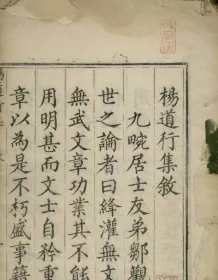 楊道行集敘
九畹居士友弟鄒觀
世之論者曰絳灌無文
無武文章功業其不能
用明甚而文士自矜重
章以為是不朽盛事籍